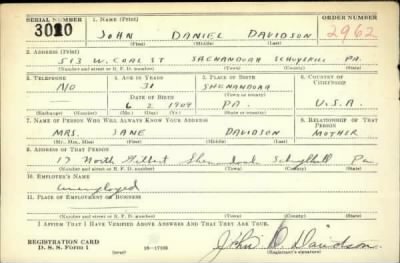 SERIAL NUMBER 1. NAME (Print) ORDER NUMBER
3010 JOHN DANIEL DAVIDSON 2962
(First) (Middle) (Last)
2. ADDRESS (Print)
513 W. COAL ST SHENANDOAH SCHUYLKILL PA.
(Number and street or R. F. D. number) (Town) (County) (State)
3. TELEPHONE 4. AGE IN YEARS 5. PLACE OF BIRTH 6. COUNTRY OF CITIZENSHIP
NO 31 SHENANDOAH
DATE OF BIRTH (Town or county)
6 2 1909 PA. U.S.A.
(Exchange) (Number) (Mo.) (Day) (Yr.) (State or country)
7. NAME OF PERSON WHO WILL ALWAYS KNOW YOUR ADDRESS 8. RELATIONSHIP OF THAT PERSON
MRS. JANE DAVIDSON MOTHER
(Mr., Mrs., Miss) (First) (Middle) (Last)
9. ADDRESS OF THAT PERSON
17 North Gilbert Shenandoah Schuylkill Pa
(Number and street or R. F. D. number) (Town) (County) (State)
10. EMPLOYER'S NAME
unemployed
11. PLACE OF EMPLOYMENT OR BUSINESS
(Number and street or R. F. D. number) (Town) (County) (State)
I AFFIRM THAT I HAVE VERIFIED ABOVE ANSWERS AND THAT THEY ARE TRUE.
REGISTRATION CARD
D. S. S. Form 1 (over) 16-17105 John D. Davidson
(Registrant's signature)